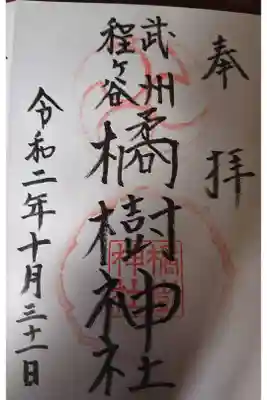 奉拝
武州
程ヶ谷
橘樹神社
令和二年十月三十一日